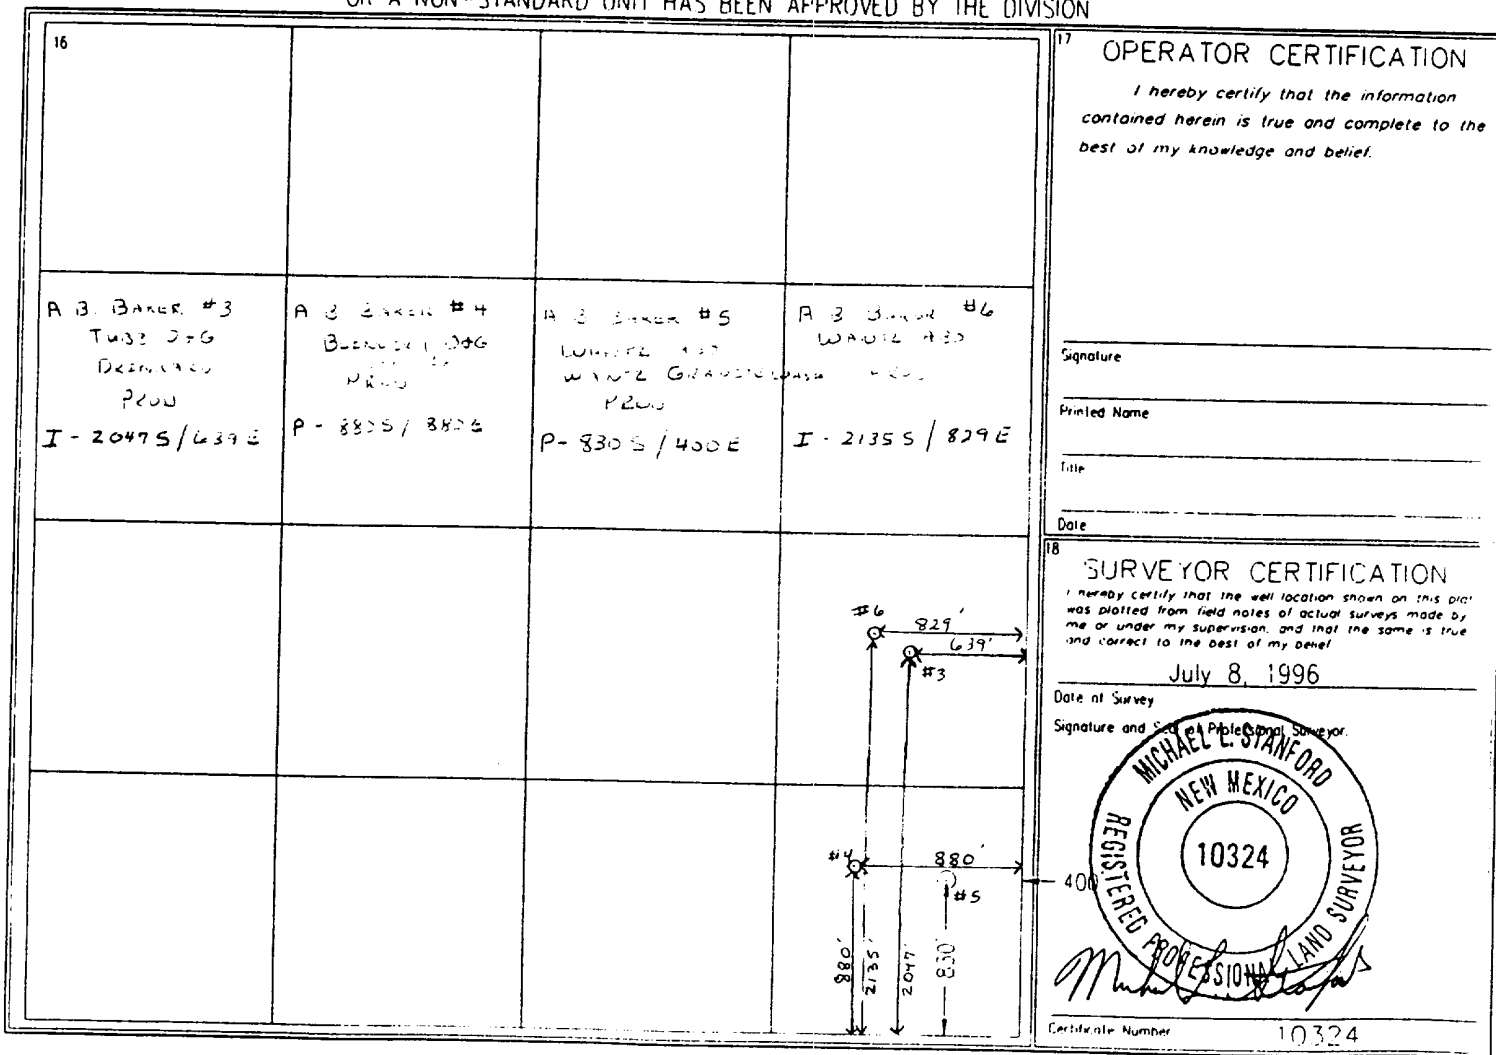 OR A NON-STANDARD UNIT HAS BEEN APPROVED BY THE DIVISION
16
A B. BAKER #3
TUBB O+G
DRINKARD
PROD
I - 2047 S / 639 E
A B BAKER #4
BLINEBRY O+G
PROD
P - 880 S / 880 E
A B BAKER #5
WANTZ ABO
WANTZ GRANITE WASH
PROD
P - 830 S / 400 E
A B BAKER #6
WANTZ ABO
PROD
I - 2135 S / 829 E
#6
829'
639'
#3
#4
880'
#5
400
880'
2135'
2047'
830'
17
OPERATOR CERTIFICATION
I hereby certify that the information
contained herein is true and complete to the
best of my knowledge and belief.
Signature
Printed Name
Title
Date
18
SURVEYOR CERTIFICATION
I hereby certify that the well location shown on this plat
was plotted from field notes of actual surveys made by
me or under my supervision, and that the same is true
and correct to the best of my belief
July 8, 1996
Date of Survey
Signature and Seal of Professional Surveyor.
MICHAEL L. STANFORD
NEW MEXICO
10324
REGISTERED PROFESSIONAL LAND SURVEYOR
Certificate Number 10324